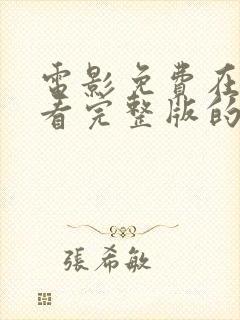 電影免費在
看完整版的
張希敏